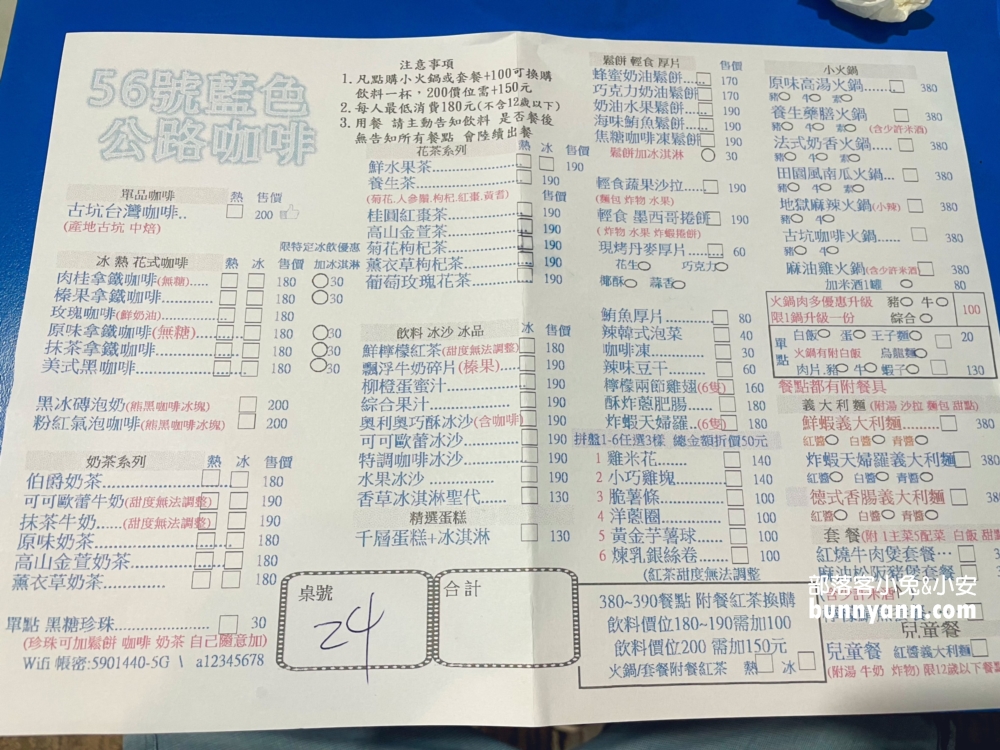 56號藍色
公路咖啡
注意事項
1. 凡點購小火鍋或套餐+100可換購
飲料一杯，200價位需+150元
2. 每人最低消費180元(不含12歲以下)
3. 用餐 請主動告知飲料 是否餐後
無告知所有餐點 會陸續出餐
單品咖啡 熱 售價
古坑台灣咖啡.. 200
(產地古坑 中焙)
限特定冰飲優惠
冰 熱 花式咖啡 熱 冰 售價 加冰淇淋
肉桂拿鐵咖啡(無糖)..... 180 30
榛果拿鐵咖啡............ 180 30
玫瑰咖啡(鮮奶油)....... 180
原味拿鐵咖啡(無糖)..... 180 30
抹茶拿鐵咖啡............ 180 30
美式黑咖啡............... 180 30
黑冰磚泡奶(熊黑咖啡冰塊) 200
粉紅氣泡咖啡(熊黑咖啡冰塊) 200
奶茶系列 熱 冰 售價
伯爵奶茶............... 180
可可歐蕾牛奶(甜度無法調整) 190
抹茶牛奶.....(甜度無法調整) 190
原味奶茶............... 180
高山金萱奶茶............ 180
薰衣草奶茶............... 180
單點 黑糖珍珠............... 30
(珍珠可加鬆餅 咖啡 奶茶 自己隨意加)
Wifi 帳密:5901440-5G \ a12345678
花茶系列 熱 冰 售價
鮮水果茶............... 190
養生茶............... 190
(菊花.人參鬚.枸杞.紅棗.黃耆)
桂圓紅棗茶............... 190
高山金萱茶............... 190
菊花枸杞茶............... 190
薰衣草枸杞茶............ 190
葡萄玫瑰花茶............ 190
飲料 冰沙 冰品 冰 售價
鮮檸檬紅茶(甜度無法調整) 180
飄浮牛奶碎片(榛果).... 190
柳橙蛋蜜汁............ 190
綜合果汁............... 190
奧利奧巧酥冰沙(含咖啡) 190
可可歐蕾冰沙............ 190
特調咖啡冰沙............ 190
水果冰沙............... 190
香草冰淇淋聖代...... 130
精選蛋糕
千層蛋糕+冰淇淋 130
桌號
24
合計
鬆餅 輕食 厚片 售價
蜂蜜奶油鬆餅.... 170
巧克力奶油鬆餅 170
奶油水果鬆餅.... 190
海味鮪魚鬆餅.... 190
焦糖咖啡凍鬆餅 190
鬆餅加冰淇淋 30
輕食蔬果沙拉.... 190
(麵包 炸物 水果)
輕食 墨西哥捲餅 190
(炸物 水果 炸蝦捲餅)
現烤丹麥厚片.... 60
花生 巧克力
椰酥 蒜香
鮪魚厚片........ 80
辣韓式泡菜 40
咖啡凍............ 30
辣味豆干........ 60
檸檬兩節雞翅(6隻) 160
酥炸蔥肥腸...... 180
炸蝦天婦羅..(6隻) 180
拼盤1-6任選3樣 總金額折價50元
1 雞米花........ 140
2 小巧雞塊........ 140
3 脆薯條........ 100
4 洋蔥圈........ 100
5 黃金芋薯球...... 100
6 煉乳銀絲卷...... 100
(紅茶甜度無法調整
380~390餐點 附餐紅茶換購
飲料價位180~190需加100
飲料價位200 需加150元
火鍋/套餐附餐紅茶 熱 冰
小火鍋 售價
原味高湯火鍋...... 380
豬 牛 素
養生藥膳火鍋 380
豬 牛 素 (含少許米酒)
法式奶香火鍋.... 380
豬 牛 素
田園風南瓜火鍋... 380
豬 牛 素
地獄麻辣火鍋(小辣) 380
豬 牛
古坑咖啡火鍋...... 380
豬 牛
麻油雞火鍋(含少許米酒) 380
加米酒1罐 80
火鍋肉多優惠升級 豬 牛 100
限1鍋升級一份 綜合
單點 白飯 蛋 王子麵 20
火鍋有附白飯 烏龍麵
肉片.豬 牛 蝦子 130
餐點都有附餐具
義大利麵 (附湯 沙拉 麵包 甜點)
鮮蝦義大利麵........ 380
紅醬 白醬 青醬
炸蝦天婦羅義大利麵 380
紅醬 白醬 青醬
德式香腸義大利麵
紅醬 白醬 青醬
套餐(附1主菜5配菜 白飯
紅燒牛肉煲套餐...
麻油松阪豬煲套餐
部落客小兔&小安
bunnyann.com
兒童餐
兒童餐 紅醬義大利麵
(附湯 牛奶 炸物) 限12歲以下